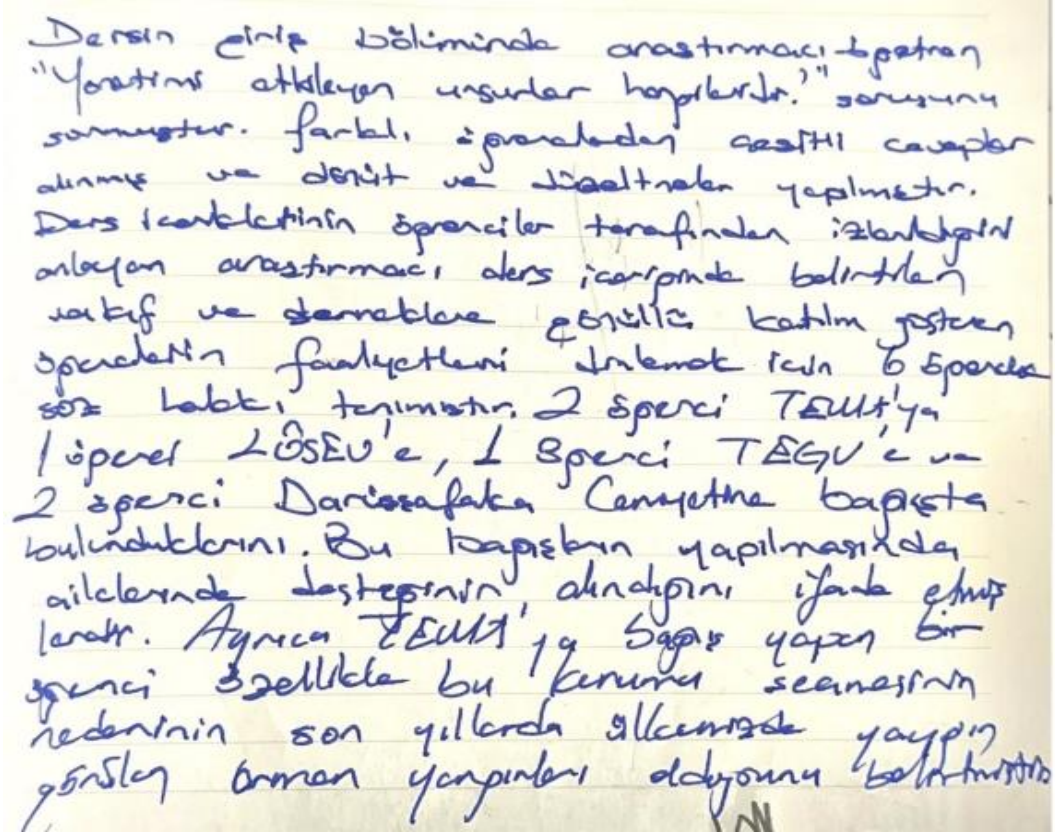 Dersin giriş bölümünde araştırmacı öğretmen
"Yönetimi etkileyen unsurlar hangileridir?" sorusunu
sormuştur. farklı öğrencilerden çeşitli cevaplar
alınmış ve dönüt ve düzeltmeler yapılmıştır.
Ders içeriklerinin öğrenciler tarafından izlendiğini
anlayan araştırmacı ders içeriğinde belirtilen
vakıf ve derneklere gönüllü katılım gösteren
öğrencilerin faaliyetlerini dinlemek için 6 öğrenciye
söz hakkı tanımıştır. 2 öğrenci TEMA'ya
1 öğrenci LÖSEV'e, 1 öğrenci TEGV'e ve
2 öğrenci Darüşşafaka Cemiyetine bağışta
bulunduklarını. Bu bağışların yapılmasında
ailelerinde desteğinin alındığını ifade etmiş
lerdir. Ayrıca TEMA'ya bağış yapan bir
öğrenci özellikle bu kurumu seçmesinin
nedeninin son yıllarda ülkemizde yaygın
görülen orman yangınları olduğunu belirtmiştir.